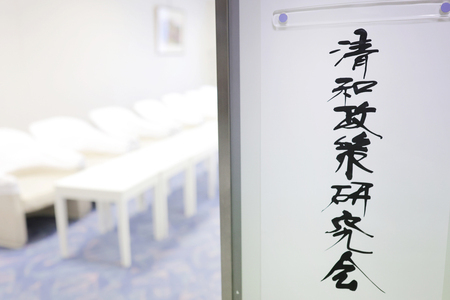 清和政策研究会